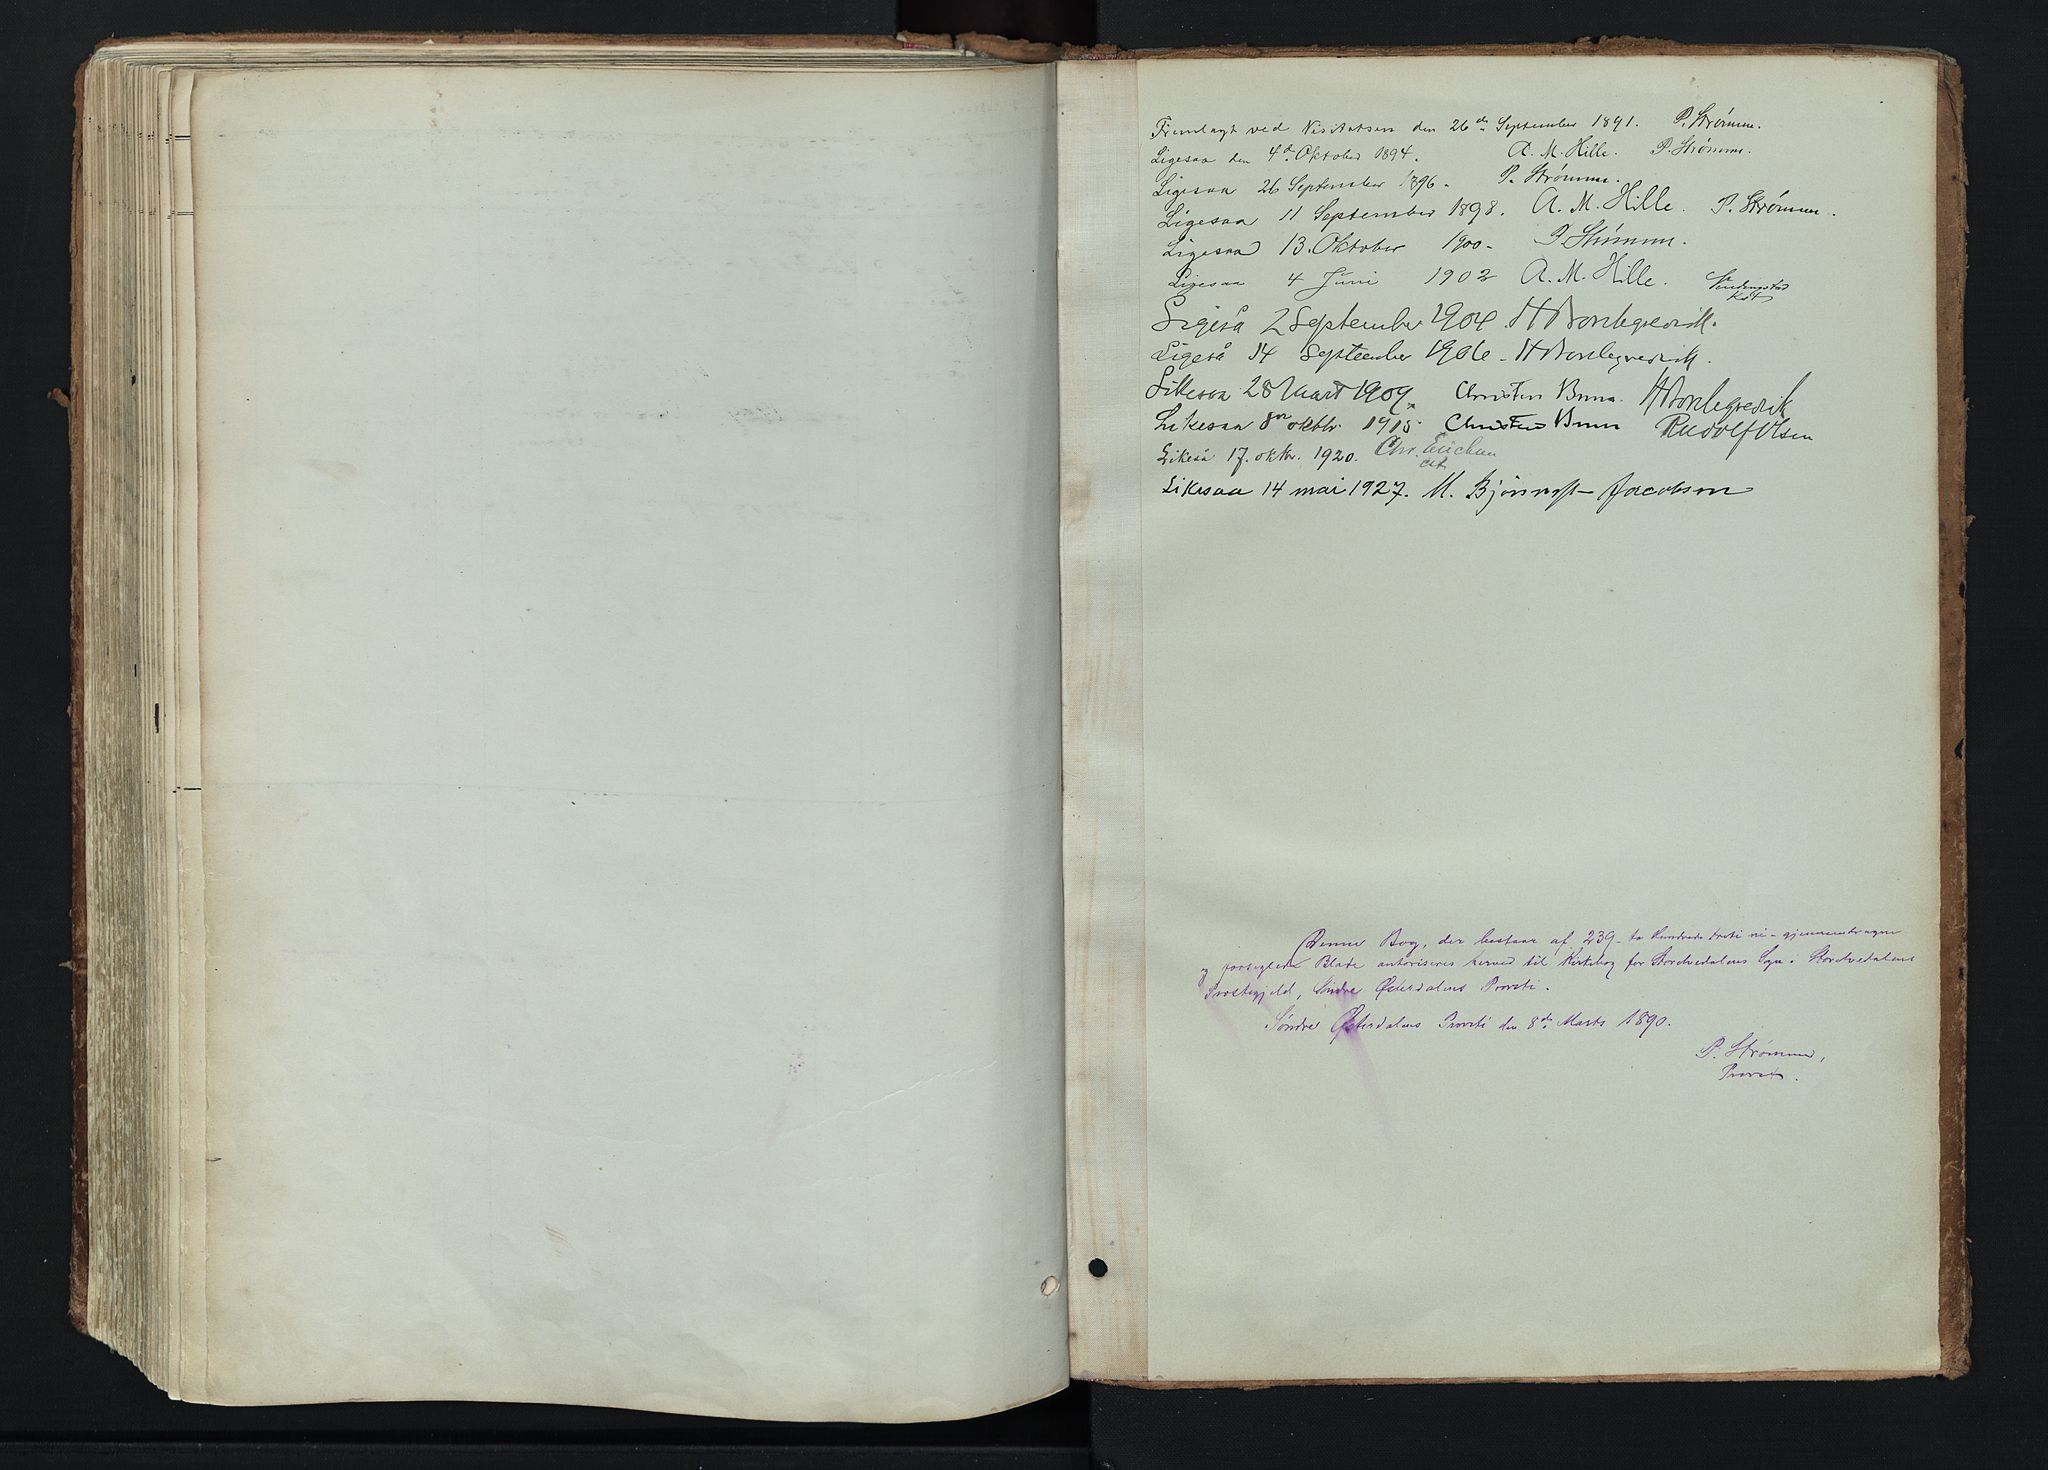 Fremlagt ved Visitatsen den 26de September 1891. P. Strømme.
Ligesaa den 4de Oktober 1894. A. M. Hille. P. Strømme.
Ligesaa 26 September 1896. P. Strømme.
Ligesaa 11 September 1898. A. M. Hille. P. Strømme.
Ligesaa 13. Oktober 1900. P. Strømme.
Ligesaa 4 Juni 1902 A. M. Hille.
Kst
Ligeså 2 September 1904. H Borchgrevink.
Ligeså 14 September 1906 H Borchgrevink.
Likesaa 28 Mart 1909. Christen Brun. H Borchgrevink
Likesaa 8de oktbr 1915. Christen Brun Rudolf Olsen
Likeså 17. oktr. 1920. Chr. Erichsen
cst
Likesaa 14 mai 1927. M. Bjønness-Jacobsen
Denne Bog, der bestaar af 239 - to hundrede treti ni - gjennemdragne
og forseglede Blade autoriseres herved til Kirkebog for Stordvedalens Sogn i Stordvedalens
Prestegjeld, Søndre Østerdalens Provsti.
Søndre Østerdalens Provsti den 8de Marts 1890.
P. Strømme,
Provst.